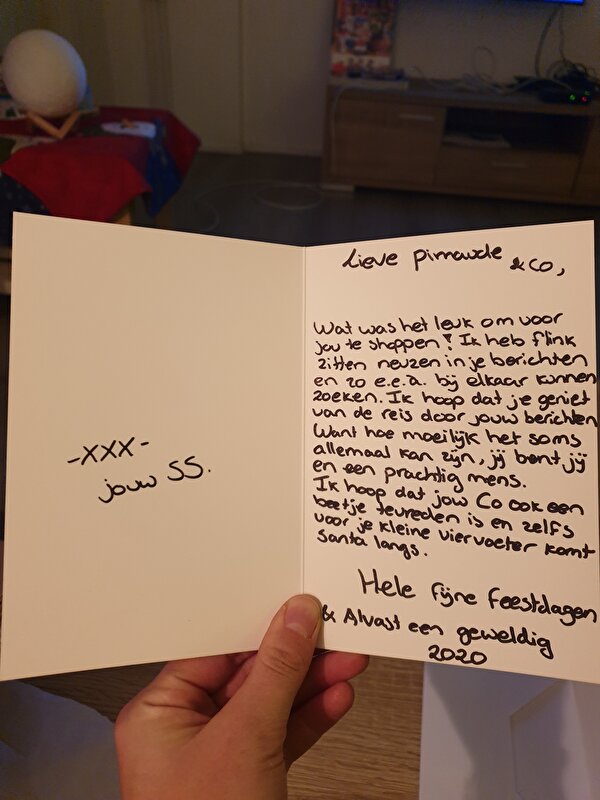 -xxx-
jouw SS.
Lieve pimaude
& co,
Wat was het leuk om voor
jou te shoppen! Ik heb flink
zitten neuzen in je berichten
en zo e.e.a. bij elkaar kunnen
zoeken. Ik hoop dat je geniet
van de reis door jouw berichten
Want hoe moeilijk het soms
allemaal kan zijn, jij bent jij
en een prachtig mens.
Ik hoop dat jouw Co ook een
beetje tevreden is en zelfs
voor je kleine viervoeter komt
Santa langs.
Hele fijne feestdagen
& Alvast een geweldig
2020